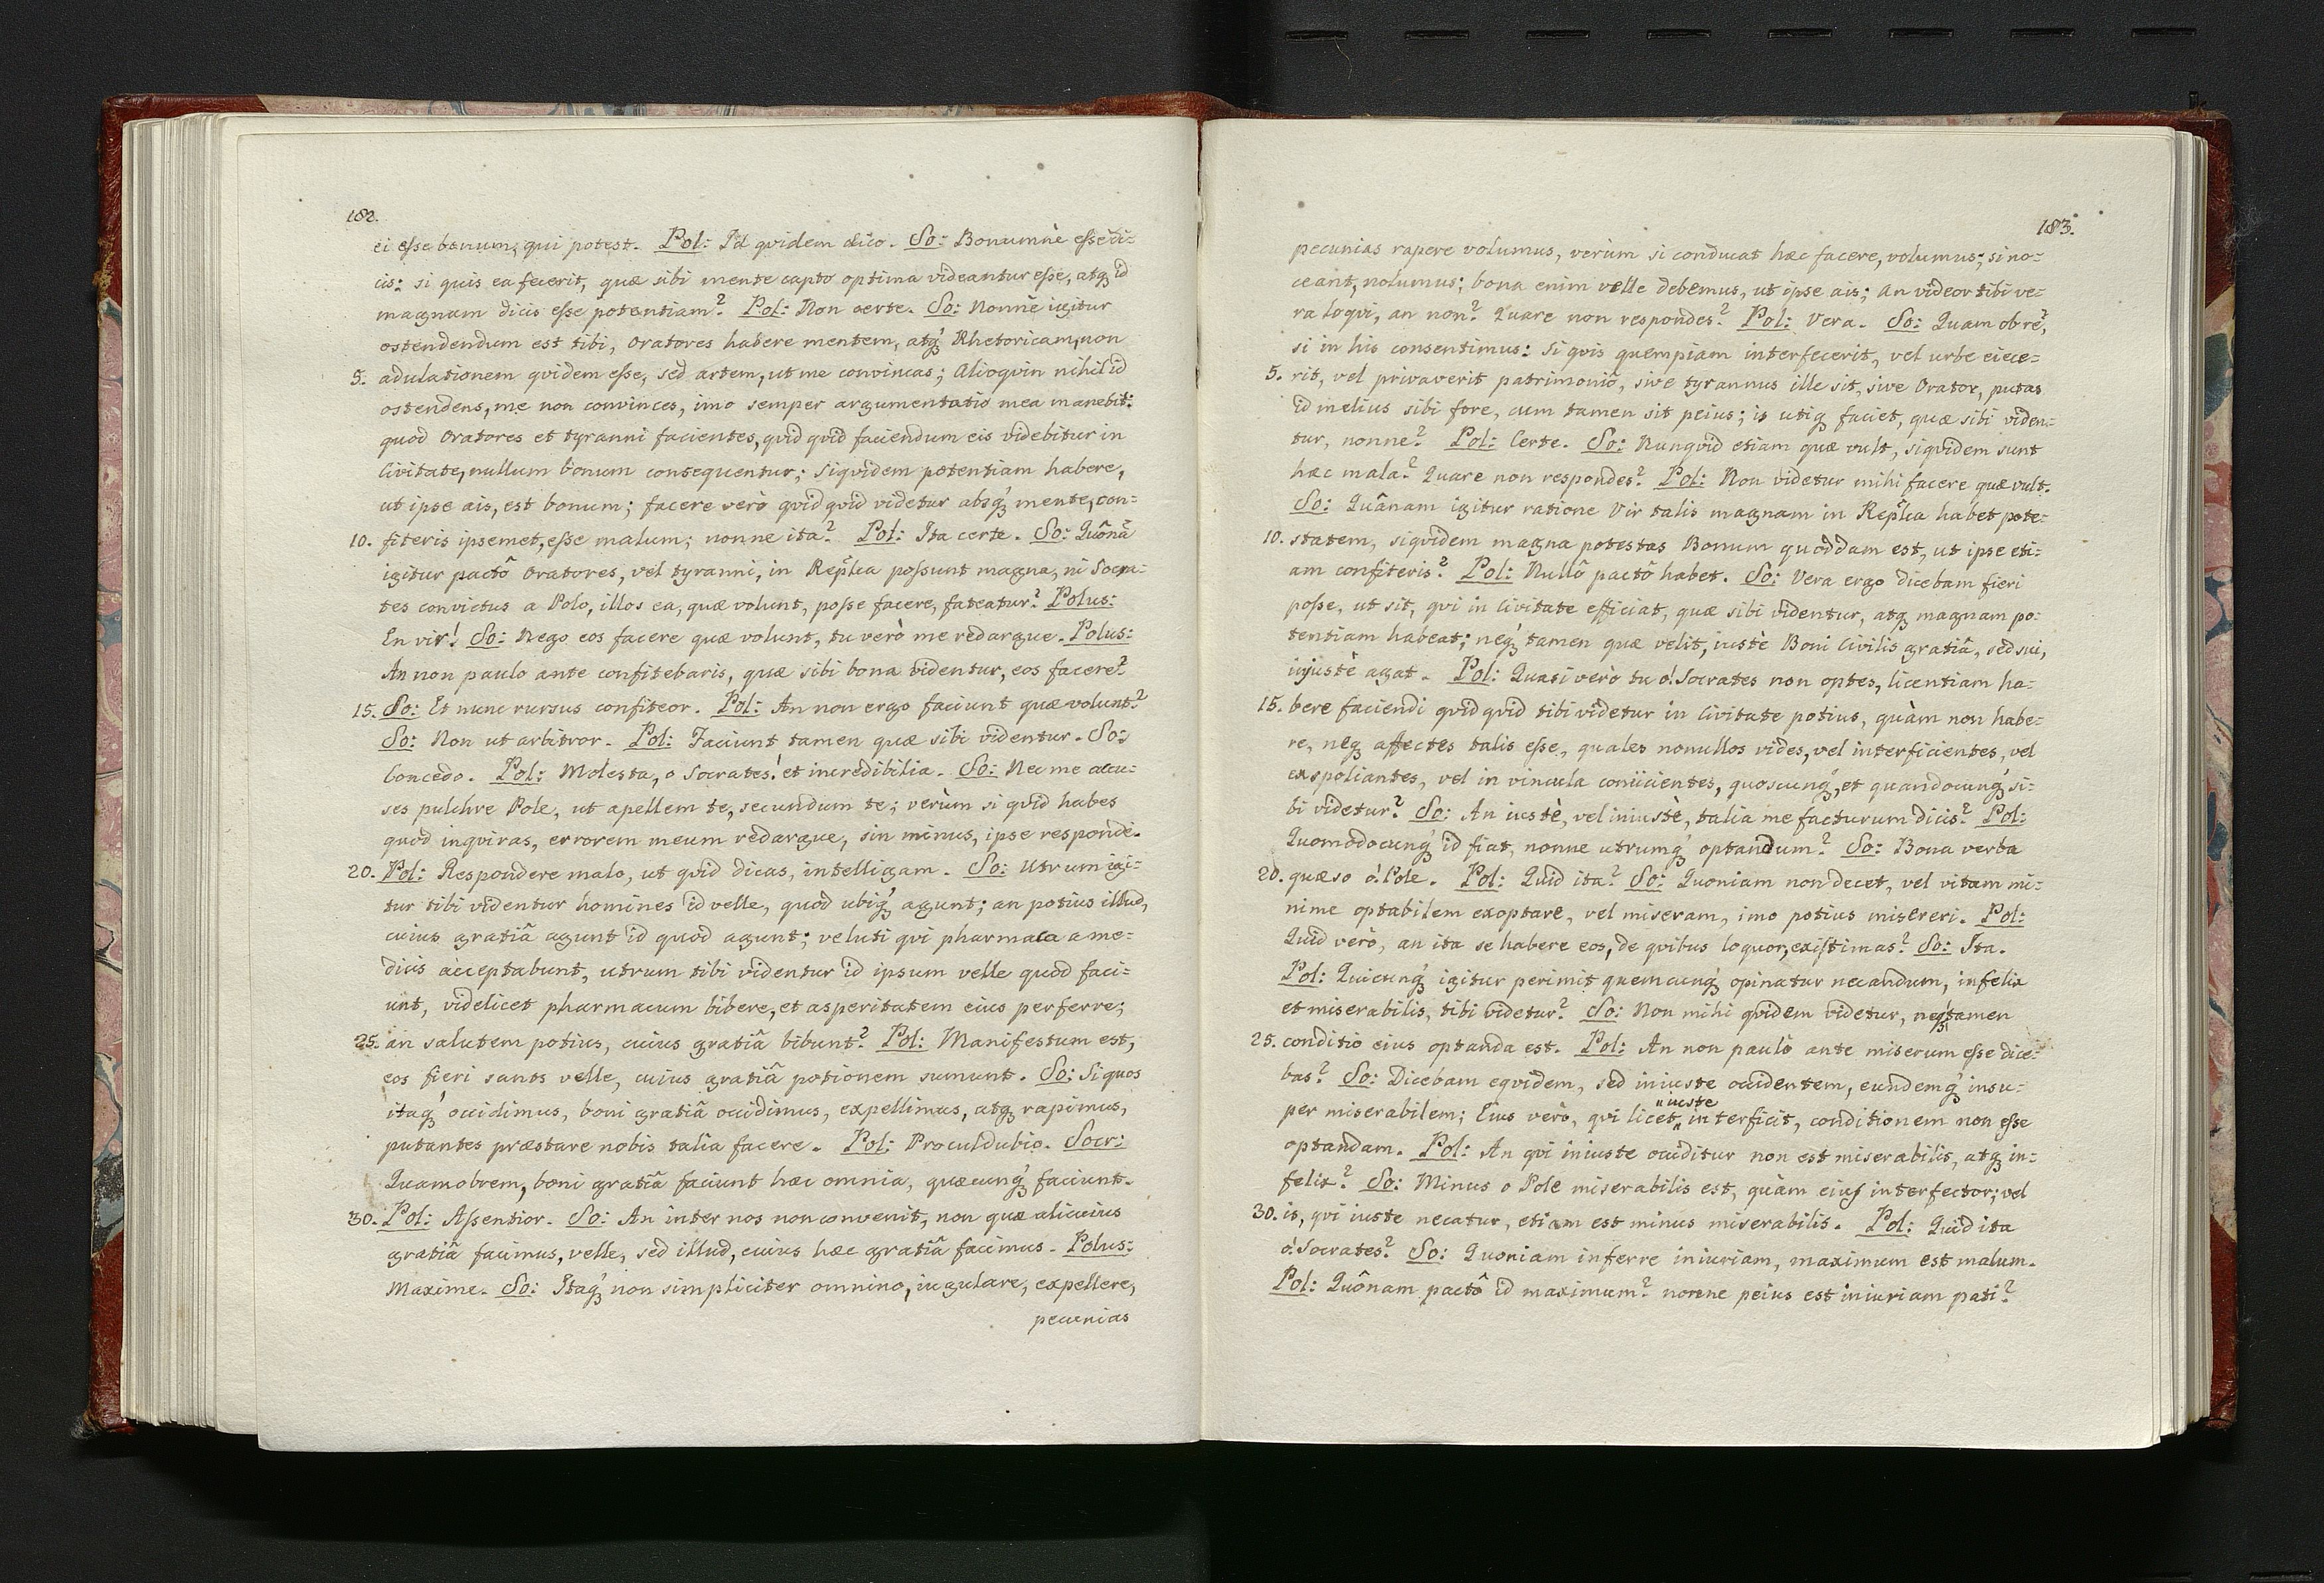 182.
ei esse bonum, qui potest. Pol: Id qvidem dico. So: Bonumnè esse di-
cis: si quis ea fecerit, quæ sibi mente capto optima videantur esse, atq, id
magnum dicis esse potentiam? Pol: Non certe. So: Nonnè igitur
ostendendum est tibi, Oratores habere mentem, atq́ Rhetoricam, non
5. adulationem qvidem esse, sed artem, ut me convincas; Alioqvin nihil id
ostendens, me non convinces, imo semper argumentatio mea manebit:
quod Oratores et tyranni facientes, qvid qvid faciendum eis videbitur in
Civitate, nullum bonum consequentur; Siqvidem potentiam habere,
ut ipse ais, est bonum; facere verò qvid qvid videtur absq́ mente, con-
10. fiteris ipsemet, esse malum; nonne ita? Pol: Ita certe. So: Quônã
igitur pactô Oratores, vel tyranni, in Rep̃lica possunt magna, ni Socra-
tes convictus a Polo, illos ea, quæ volunt, posse facere, fateatur? Polus:
En vir! So: Nego eos facere quæ volunt, tu verò me redargue. Polus:
An non paulo ante confitebaris, quæ sibi bona videntur, eos facere?
15. So: Et nunc rursus confiteor. Pol: An non ergo faciunt quæ volunt?
So: Non ut arbitror. Pol: Faciunt tamen quæ sibi videntur. So:
Concedo. Pol: Molesta, o Socrates! et incredibilia. So: Nec me accu-
ses pulchre Pole, ut apellem te, secundum te; verùm si qvid habes
quod inqviras, errorem meum redargue, sin minus, ipse responde.
20. Pol: Respondere malo, ut qvid dicas, intelligam. So: Utrum igi-
tur tibi videntur homines id velle, quod ubiq́ agunt; an potius illud,
cuius gratiâ agunt id quod agunt; veluti qvi pharmaca a me-
dicis acceptabunt, utrum tibi videntur id ipsum velle quod faci-
unt, videlicet pharmacum bibere, et asperitatem eius perferre;
25. an salutem potius, cuius gratiâ bibunt? Pol: Manifestum est,
eos fieri sanos velle, cuius gratiâ potionem sumunt. So: Si quos
itaq́ occidimus, boni gratiâ occidimus, expellimus, atq, rapimus,
putantes præstare nobis talia facere. Pol: Proculdubio. Socr:
Quamobrem, boni gratiâ faciunt hæc omnia, quæcunq́ faciunt.
30. Pol: Assentior. So: An inter nos non convenit, non quæ alicuius
gratiâ facimus, velle, sed illud, cuius hæc gratiâ facimus. Polus:
Maxime. So: Itaq́ non simpliciter omnino, iugulare, expellere,
pecunias
183.
pecunias rapere volumus, verùm si conducat hæc facere, volumus; si no-
ceant, nolumus; bona enim velle debemus, ut ipse ais; an videor tibi ve-
ra loqvi, an non? Quare non respondes? Pol: Vera. So: Quam ob rẽ,
si in his consentimus: Si qvis quempiam interfecerit, vel urbe eiece-
5. rit, vel privaverit patrimoniô, sive tyrannus ille sit, sive Orator, putas
id melius sibi fore, cum tamen sit peius; is utiq, faciet, quæ sibi viden-
tur, nonne? Pol: Certe. So: Nunqvid etiam quæ vult, siqvidem sunt
hæc mala? Quare non respondes? Pol: Non videtur mihi facere quæ vult.
So: Quânam igitur ratione Vir talis magnam in Rep̃lica habet pote-
10. statem, siqvidem magna potestas Bonum quoddam est, ut ipse eti-
am confiteris? Pol: Nullô pactô habet. So: Vera ergo dicebam fieri
posse, ut sit, qvi in Civitate efficiat, quæ sibi videntur, atq, magnam po-
tentiam habeat; neq́ tamen quæ velit, iustè Boni Civilis gratiâ, sed sui,
injustè agat. Pol: Quasi verò tu ó! Socrates non optes, licentiam ha-
15. bere faciendi qvid qvid tibi videtur in Civitate potius, quàm non habe-
re, neq, affectes talis esse, quales nonullos vides, vel interficientes, vel
exspoliantes, vel in vincula coniicientes, quoscunq́, et quandocunq́ si-
bi videtur? So: An iustè, vel iniustè, talia me facturum dicis? Pol:
Quomodocunq́ id fiat, nonne utrumq́ optandum? So: Bona verba
20. quæso ó! Pole. Pol: Quid ita? So: Quoniam non decet, vel vitam mi-
nime optabilem exoptare, vel miseram, imo potius misereri. Pol:
Quid verò, an ita se habere eos, de qvibus loquor, existimas? So: Ita.
Pol: Quicunq́ igitur perimit quemcunq́ opinatur necandum, infelix
et miserabilis, tibi videtur? So: Non mihi qvidem videtur, neq́ tamen
25. conditio eius optanda est. Pol: An non paulò ante miserum esse dice-
bas? So: Dicebam eqvidem, sed iniuste occidentem, eundemq́ insu-
per miserabilem; Eius verò, qvi licet „iuste „interficit, conditionem non esse
optandam. Pol: An qvi iniuste occiditur non est miserabilis, atq, in-
felix? So: Minus o Pole miserabilis est, quàm eius interfector; vel
30. is, qvi iuste necatur, etiam est minus miserabilis. Pol: Quid ita
ó! Socrates? So: Quoniam inferre iniuriam, maximum est malum.
Pol: Quônam pactô id maximum? nonne peius est iniuriam pati?